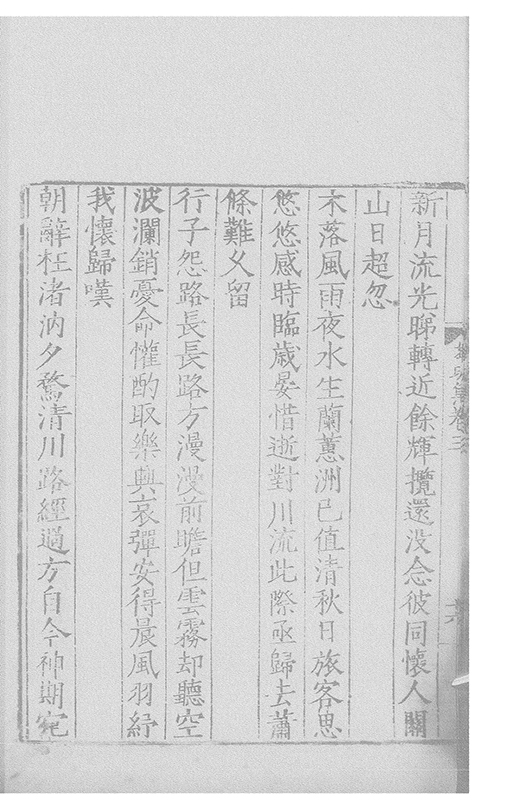 新月流光睇轉近餘輝攬還没念彼同懷人關
山日超忽
木落風雨夜水生蘭蕙洲已值清秋日旅客思
悠悠感時臨歲晏惜逝對川流此際亟歸去蕭
條難久留
行子怨路長長路方漫漫前瞻但雲霧却聽空
波瀾銷憂命懽酌取樂興哀彈安得晨風羽紓
我懷歸嘆
朝辭枉渚汭夕騖清川路經過方自今神期宛
集卷三